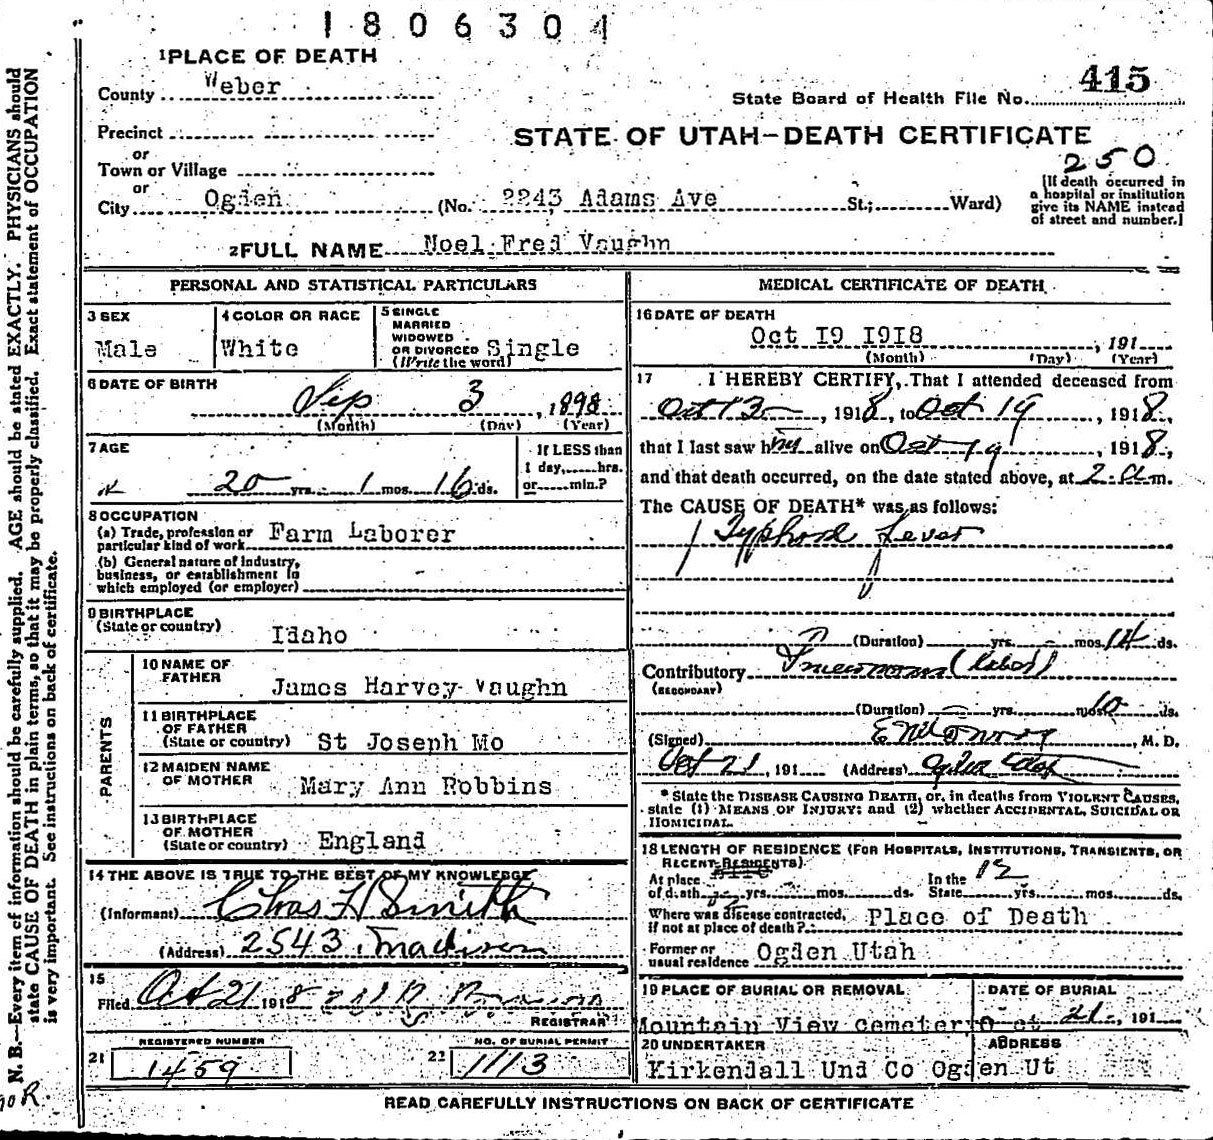 1806301
1 PLACE OF DEATH
County Weber
415
State Board of Health File No.
Precinct
STATE OF UTAH—DEATH CERTIFICATE
or
250
Town or Village
or
City Ogden (No. 2243 Adams Ave St.; Ward)
[If death occurred in
a hospital or institution
give its NAME instead
of street and number.]
2 FULL NAME Noel Fred Vaughn
PERSONAL AND STATISTICAL PARTICULARS
3 SEX
Male
4 COLOR OR RACE
White
5 SINGLE
MARRIED
WIDOWED
OR DIVORCED Single
(Write the word)
6 DATE OF BIRTH
Sep 3, 1898
(Month) (Day) (Year)
7 AGE
20 yrs. 1 mos. 16 ds.
If LESS than
1 day,.....hrs.
or.....min.?
8 OCCUPATION
(a) Trade, profession or
particular kind of work Farm Laborer
(b) General nature of industry,
business, or establishment in
which employed (or employer)
9 BIRTHPLACE
(State or country)
Idaho
PARENTS
10 NAME OF
FATHER
James Harvey Vaughn
11 BIRTHPLACE
OF FATHER
(State or country) St Joseph Mo
12 MAIDEN NAME
OF MOTHER Mary Ann Robbins
13 BIRTHPLACE
OF MOTHER
(State or country) England
14 THE ABOVE IS TRUE TO THE BEST OF MY KNOWLEDGE
(Informant) Chas H Smith
(Address) 2543 Madison
15
Filed Oct 21 1918
REGISTRAR
21 REGISTERED NUMBER
1459
22 NO. OF BURIAL PERMIT
1113
MEDICAL CERTIFICATE OF DEATH
16 DATE OF DEATH
Oct 19 1918, 191
(Month) (Day) (Year)
17 I HEREBY CERTIFY, That I attended deceased from
Oct 12, 1918, to Oct 19, 1918,
that I last saw him alive on Oct 19, 1918,
and that death occurred, on the date stated above, at 2 a m.
The CAUSE OF DEATH* was as follows:
Typhoid Fever
(Duration) yrs. mos. 14 ds.
Contributory Pneumonia (Lobar)
(SECONDARY)
(Duration) yrs. mos. 10 ds.
(Signed) M. D.
Oct 21, 191 (Address) Ogden Utah
* State the DISEASE CAUSING DEATH, or, in deaths from VIOLENT CAUSES,
state (1) MEANS OF INJURY; and (2) whether ACCIDENTAL, SUICIDAL OR
HOMICIDAL.
18 LENGTH OF RESIDENCE (FOR HOSPITALS, INSTITUTIONS, TRANSIENTS, OR
RECENT RESIDENTS).
At place
of death yrs. mos. ds.
In the
State 12 yrs. mos. ds.
Where was disease contracted,
if not at place of death? Place of Death
Former or
usual residence Ogden Utah
19 PLACE OF BURIAL OR REMOVAL
Mountain View Cemetery
DATE OF BURIAL
Oct 21, 191
20 UNDERTAKER
Kirkendall Und Co
ADDRESS
Ogden Ut
READ CAREFULLY INSTRUCTIONS ON BACK OF CERTIFICATE
N. B.—Every item of information should be carefully supplied. AGE should be stated EXACTLY. PHYSICIANS should
state CAUSE OF DEATH in plain terms, so that it may be properly classified. Exact statement of OCCUPATION
is very important. See instructions on back of certificate.